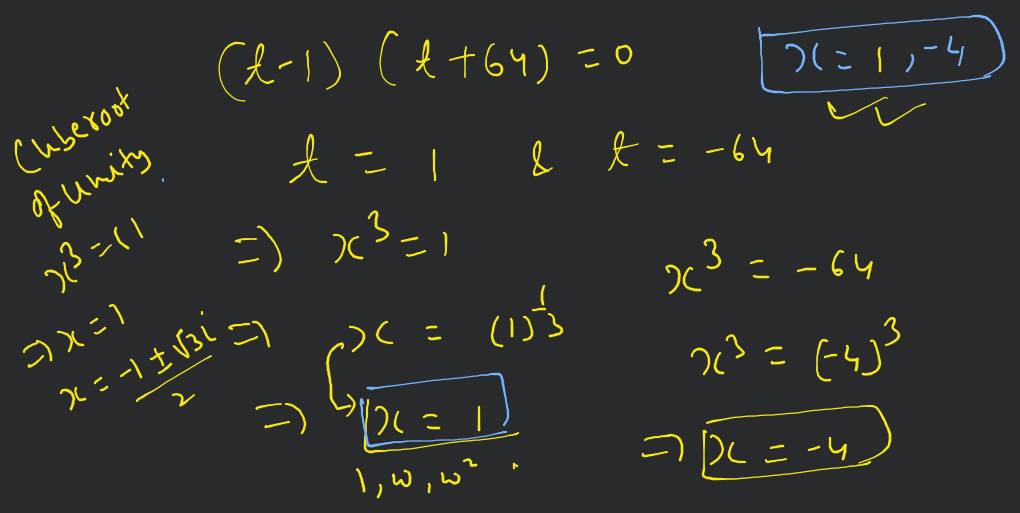 (t-1) (t+64) = 0
x = 1, -4
Cuberoot
of unity.
t = 1 & t = -64
x³ = 1
⇒ x³ = 1
x³ = -64
⇒ x = 1
x = (-1 ± √3i)/2
⇒ x = (1)^(1/3)
x³ = (-4)³
⇒ x = 1
⇒ x = -4
1, ω, ω².